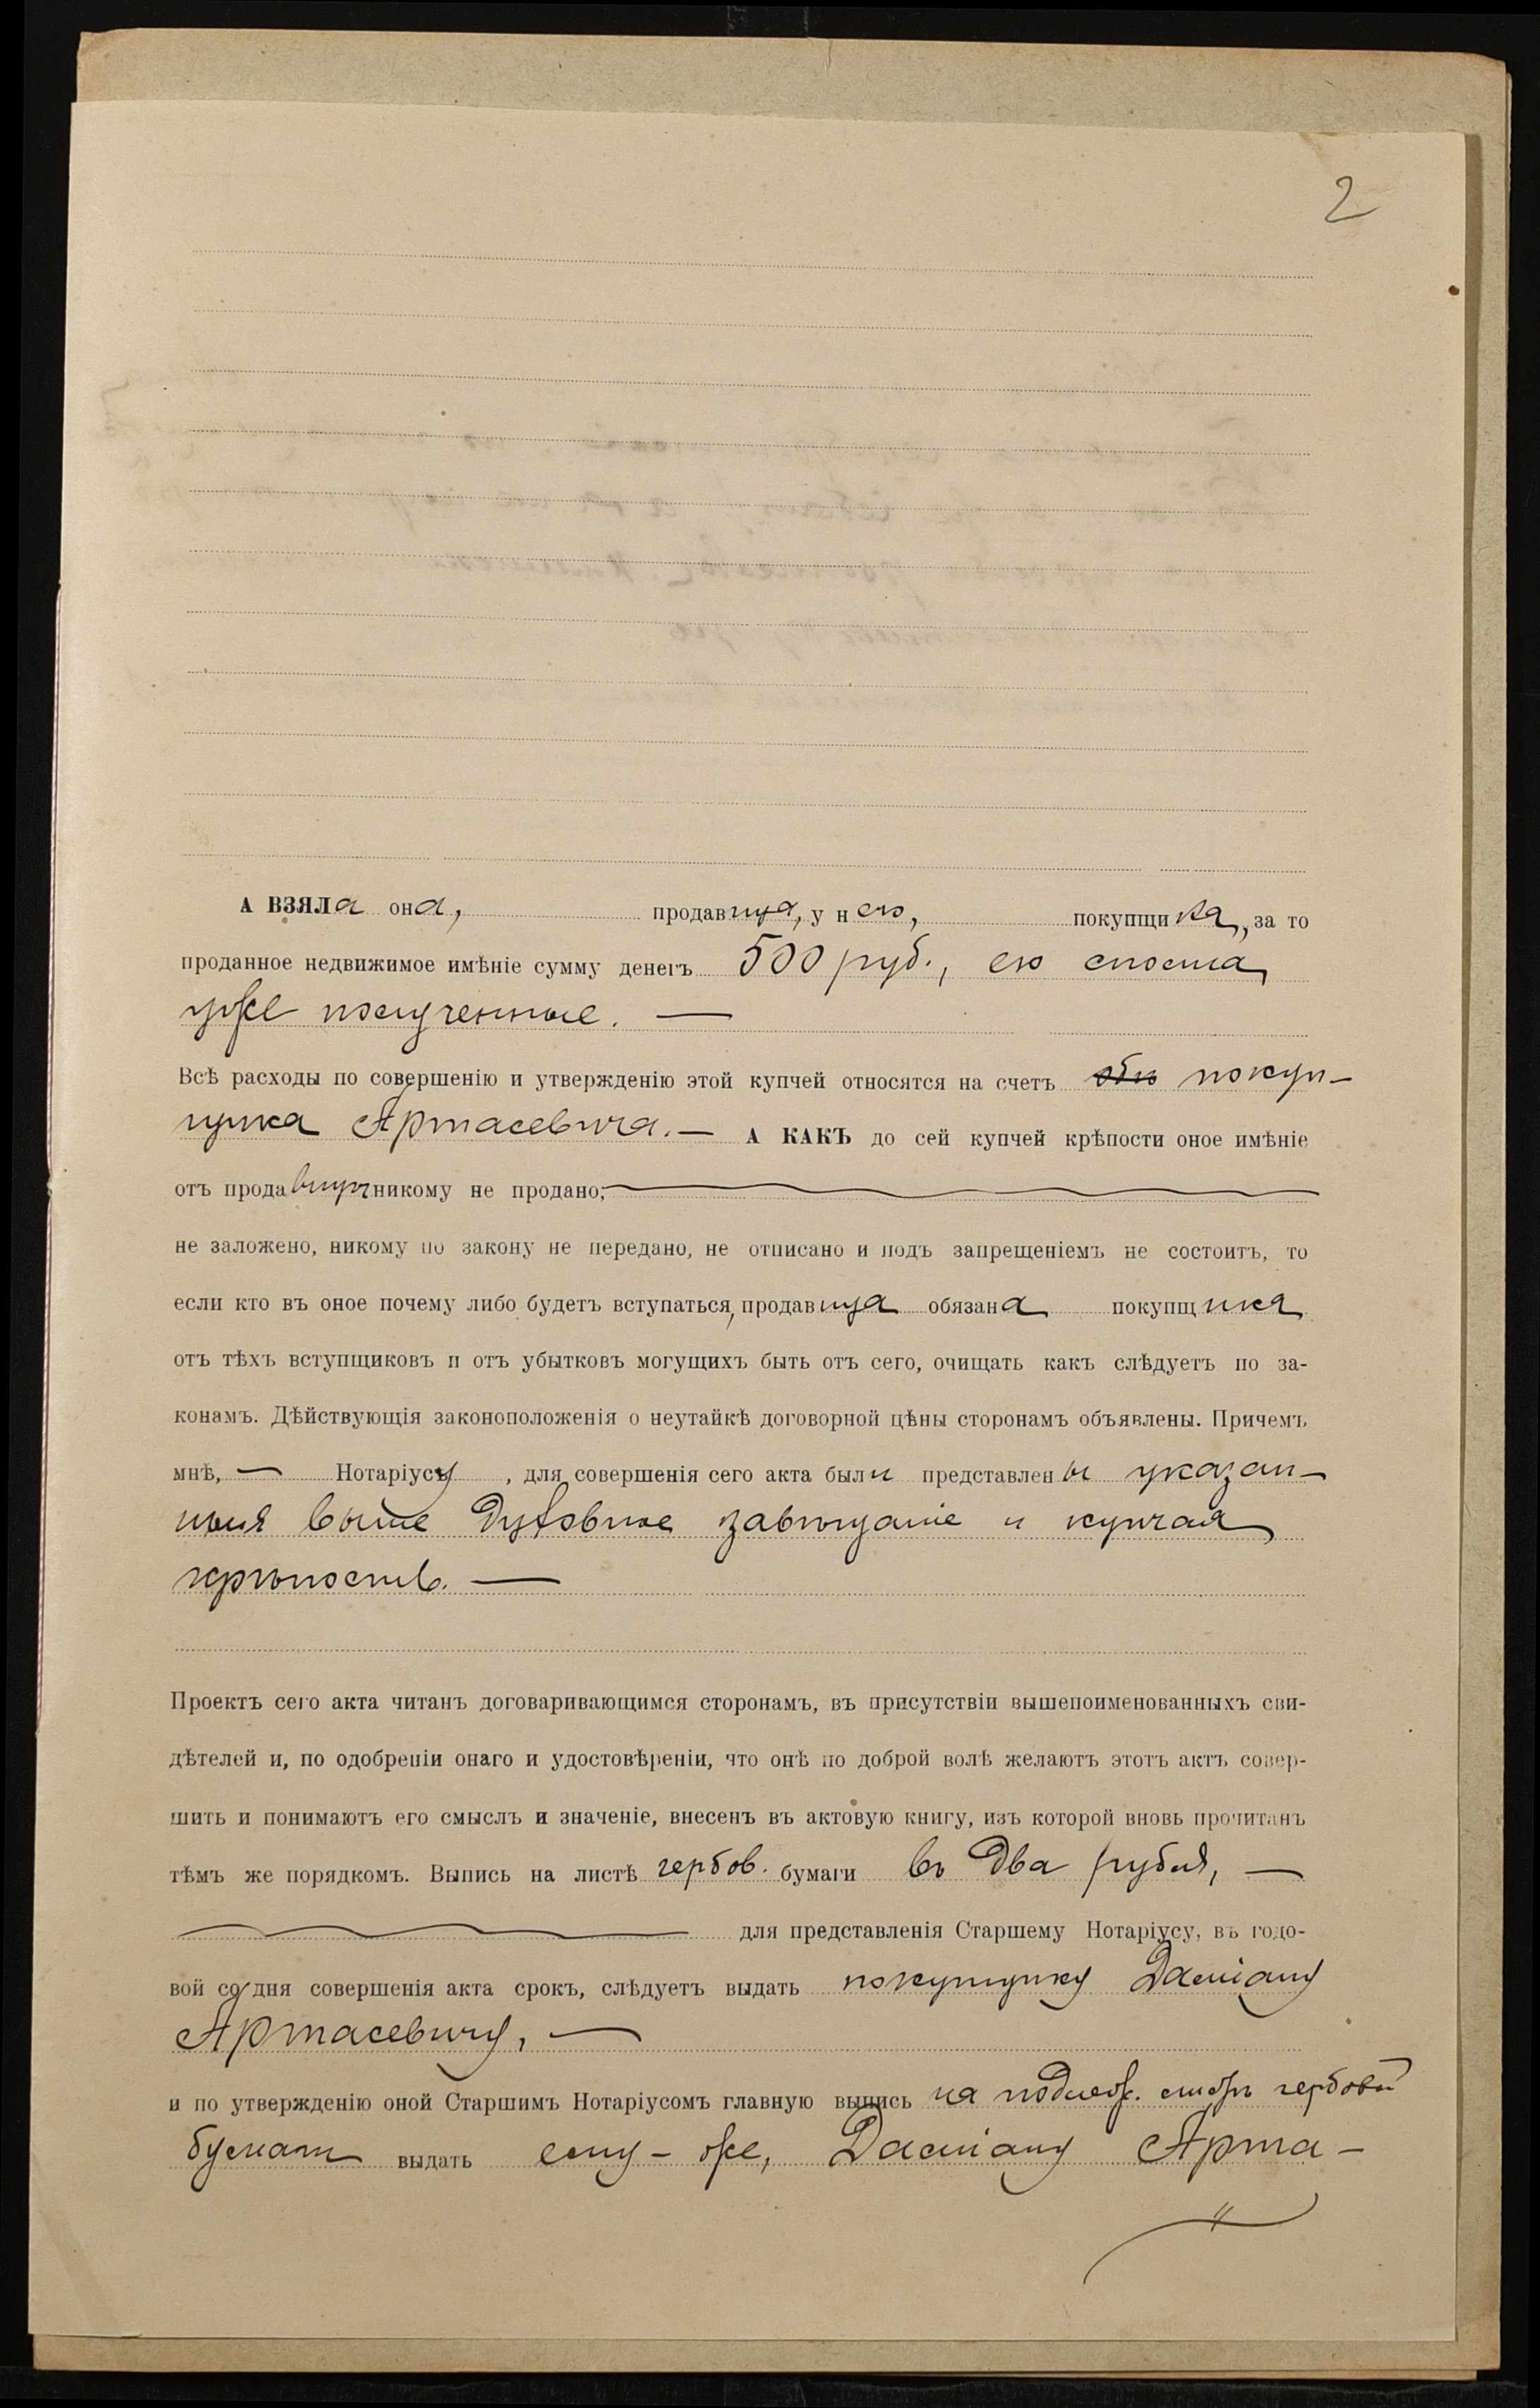 2
А ВЗЯЛа она, продавица, у него, покупщика, за то
проданное недвижимое имѣніе сумму денегъ 500 руб., ею сполна
уже полученные. —
Всѣ расходы по совершенію и утвержденію этой купчей относятся на счетъ покуп-
щика Артасевича. — А КАКЪ до сей купчей крѣпости оное имѣніе
отъ продавицы никому не продано,
не заложено, никому по закону не передано, не отписано и подъ запрещеніемъ не состоитъ, то
если кто въ оное почему либо будетъ вступаться, продавица обязана покупщика
отъ тѣхъ вступщиковъ и отъ убытковъ могущихъ быть отъ сего, очищать какъ слѣдуетъ по за-
конамъ. Дѣйствующія законоположенія о неутайкѣ договорной цѣны сторонамъ объявлены. Причемъ
мнѣ, — Нотаріусу, для совершенія сего акта были представлены указан-
ныя выше духовное завѣщаніе и купчая
крѣпость. —
Проектъ сего акта читанъ договаривающимся сторонамъ, въ присутствіи вышепоименованныхъ сви-
дѣтелей и, по одобреніи онаго и удостовѣреніи, что онѣ по доброй волѣ желаютъ этотъ актъ совер-
шить и понимаютъ его смыслъ и значеніе, внесенъ въ актовую книгу, изъ которой вновь прочитанъ
тѣмъ же порядкомъ. Выпись на листѣ гербов. бумаги въ два рубля, —
для представленія Старшему Нотаріусу, въ годо-
вой со дня совершенія акта срокъ, слѣдуетъ выдать покупщику Даміану
Артасевичу, —
и по утвержденію оной Старшимъ Нотаріусомъ главную выпись на подлеж. гербовой
бумаги выдать ему-же, Даміану Арта-